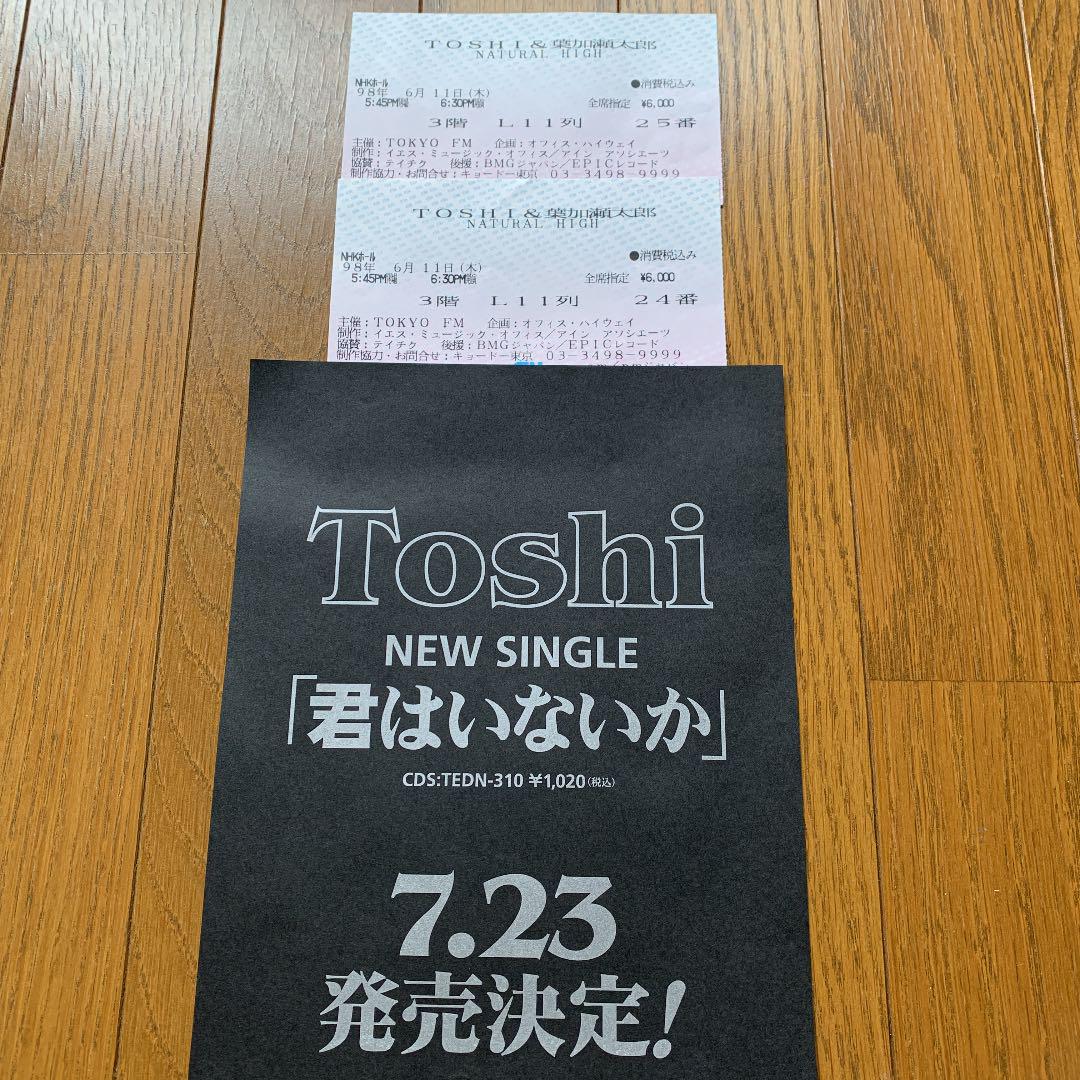 TOSHI&葉加瀬太郎
NATURAL HIGH
NHKホール
98年 6月11日(木)
●消費税込み
5:45PM開場 6:30PM開演
全席指定 ¥6,000
3階 L11列 25番
主催:TOKYO FM 企画:オフィス・ハイウェイ
制作:イエス・ミュージック・オフィス/アイン アソシエーツ
協賛:テイチク 後援:BMGジャパン/EPICレコード
制作協力・お問合せ:キョードー東京 03-3498-9999
TOSHI&葉加瀬太郎
NATURAL HIGH
NHKホール
98年 6月11日(木)
●消費税込み
5:45PM開場 6:30PM開演
全席指定 ¥6,000
3階 L11列 24番
主催:TOKYO FM 企画:オフィス・ハイウェイ
制作:イエス・ミュージック・オフィス/アイン アソシエーツ
協賛:テイチク 後援:BMGジャパン/EPICレコード
制作協力・お問合せ:キョードー東京 03-3498-9999
Toshi
NEW SINGLE
「君はいないか」
CDS:TEDN-310 ¥1,020(税込)
7.23
発売決定!